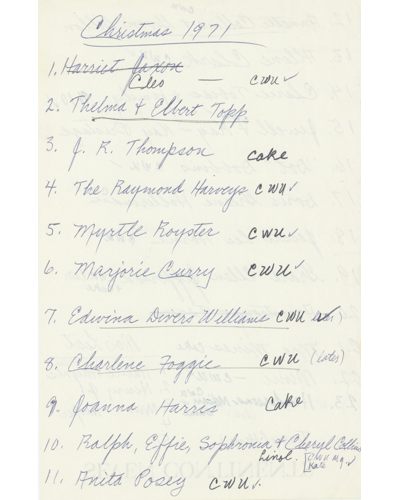 Christmas 1971
1. Harriet Jaxon
Cleo — CWU ✓
2. Thelma & Elbert Topp
3. J. R. Thompson cake
4. The Raymond Harveys CWU ✓
5. Myrtle Royster CWU ✓
6. Marjorie Curry CWU ✓
7. Edwina Divers Williams CWU
8. Charlene Foggie CWU (later)
9. Joanna Harris Cake
10. Ralph, Effie, Sophronia & Cheryl Collins
11. Anita Posey CWU ✓